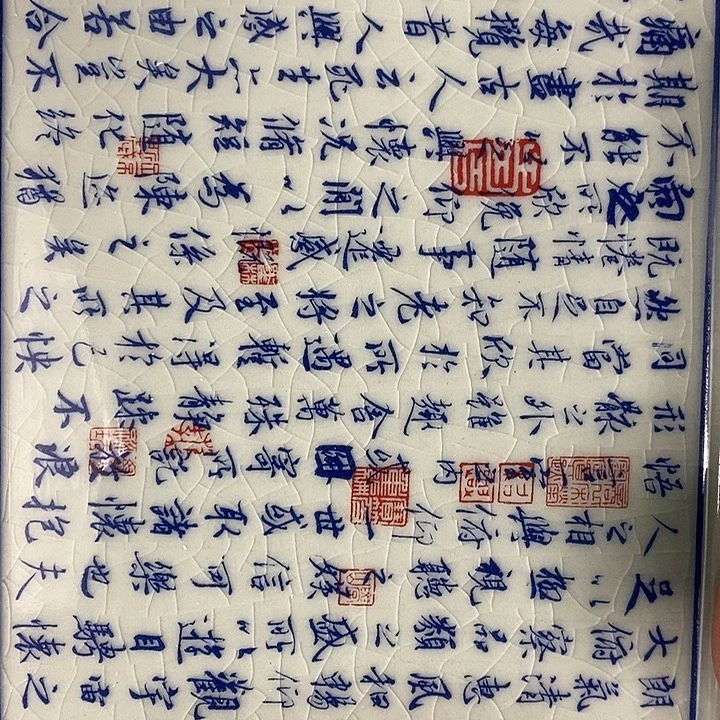 朗氣清惠風和暢仰觀宇宙之
大俯察品類之盛所以遊目騁懷
足以極視聽之娛信可樂也夫
人之相與俯仰一世或取諸懷抱
悟內或因寄所託放浪
形骸之外雖趣舍萬殊靜躁不
同當其欣於所遇得於己快
然自足不知老之將至及其所之
既惓情隨事遷感慨係之矣
向之所欣俛仰之閒以為陳迹猶
不能不以興懷況脩短隨化終
期於盡古人云死生亦大矣豈不
痛哉每攬昔人興感之由若合